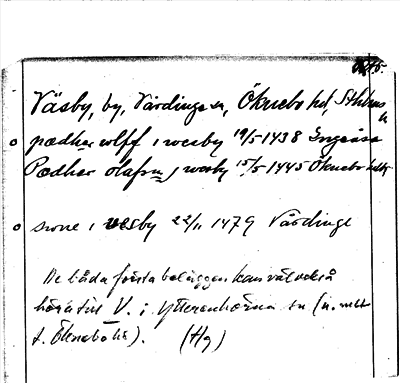 Väsby, by, Vårdinge sn, Öknebo hd, Sthlms
n
pædhar wlff i wesby 19/5 1438
Pædhar olafsn i wesby 15/5 1445 Öknebo
swne i vesby 22/11 1479 Vårdinge
De båda första beläggen kan väl också
höra till V. i Ytterenhörna sn (n. mbt
t. Öknebo hd). (Hg)